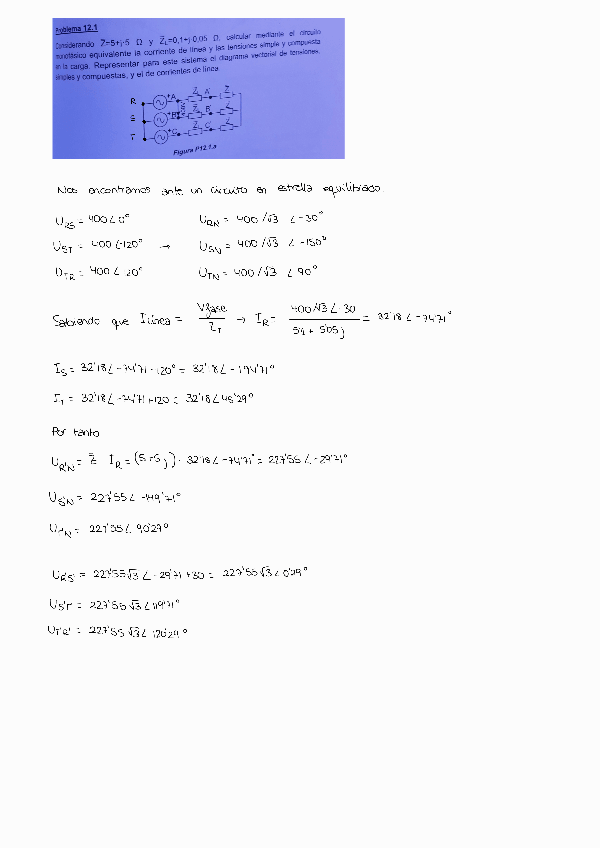 Problema 12.1
Considerando Z̄=5+j·5 Ω y Z̄L=0,1+j·0,05 Ω, calcular mediante el circuito
monofásico equivalente la corriente de línea y las tensiones simple y compuesta
en la carga. Representar para este sistema el diagrama vectorial de tensiones,
simples y compuestas, y el de corrientes de línea.
R +A Z̄L A' Z̄
S +B Z̄L B' Z̄
T +C Z̄L C' Z̄
Figura P12.1.a
Nos encontramos ante un circuito en estrella equilibrado.
U_RS = 400∠0° U_RN = 400/√3 ∠-30°
U_ST = 400∠-120° → U_SN = 400/√3 ∠-150°
U_TR = 400∠ 20° U_TN = 400/√3 ∠90°
Sabiendo que I línea = Vfase / Z_T → I_R = 400√3∠-30 / 5'1 + 5'05j = 32'18∠-74'71°
I_S = 32'18∠-74'71-120° = 32' 8∠-194'71°
I_T = 32'18∠-74'71+120 = 32'18∠45'29°
Por tanto
U_R'N = Z̄ I_R = (5+5j)· 32'18∠-74'71° = 227'55∠-29'71°
U_S'N = 227'55∠-149'71°
U_T'N = 227'55∠90'29°
U_R'S' = 227'55√3∠-29'71+30 = 227'55√3∠0'29°
U_S'T' = 227'55√3∠119'71°
U_T'R' = 227'55√3∠120'29°